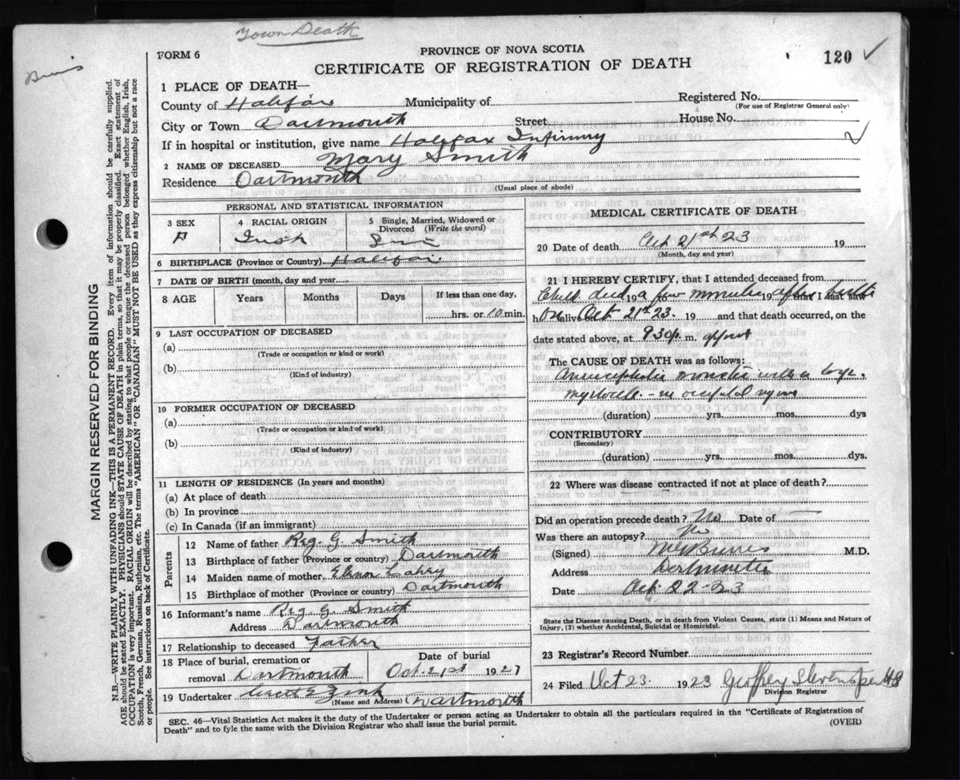 Town Death
FORM 6
PROVINCE OF NOVA SCOTIA
CERTIFICATE OF REGISTRATION OF DEATH
120 ✓
MARGIN RESERVED FOR BINDING
N.B.—WRITE PLAINLY WITH UNFADING INK—THIS IS A PERMANENT RECORD. Every item of information should be carefully supplied.
AGE should be stated EXACTLY. PHYSICIANS should STATE CAUSE OF DEATH in plain terms, so that it may be properly classified. Exact statement of
OCCUPATION is very important. RACIAL ORIGIN will be described by stating to what people or tongue the deceased person belonged whether English, Irish,
Scotch, French, German, Russian, Ruthenian, etc. The terms "AMERICAN" OR "CANADIAN" MUST NOT BE USED as they express citizenship but not a race
or people. See instructions on back of Certificate.
1 PLACE OF DEATH—
County of Halifax Municipality of
Registered No.
(For use of Registrar General only)
City or Town Dartmouth Street House No.
If in hospital or institution, give name Halifax Infirmary
2 NAME OF DECEASED Mary Smith
Residence Dartmouth
(Usual place of abode)
PERSONAL AND STATISTICAL INFORMATION
3 SEX
F
4 RACIAL ORIGIN
Irish
5 Single, Married, Widowed or
Divorced (Write the word)
6 BIRTHPLACE (Province or Country) Halifax
7 DATE OF BIRTH (month, day and year)
8 AGE Years Months Days If less than one day,
hrs. or 10 min.
9 LAST OCCUPATION OF DECEASED
(a)
(Trade or occupation or kind or work)
(b)
(Kind of industry)
10 FORMER OCCUPATION OF DECEASED
(a)
(Trade or occupation or kind of work)
(b)
(Kind of industry)
11 LENGTH OF RESIDENCE (In years and months)
(a) At place of death
(b) In province
(c) In Canada (if an immigrant)
Parents
12 Name of father Reg. G. Smith
13 Birthplace of father (Province or country) Dartmouth
14 Maiden name of mother Lahey
15 Birthplace of mother (Province or country) Dartmouth
16 Informant's name Reg. G. Smith
Address Dartmouth
17 Relationship to deceased Father
18 Place of burial, cremation or
removal Dartmouth
Date of burial
Oct. 21st 1927
19 Undertaker Zink
(Name and Address) Dartmouth
MEDICAL CERTIFICATE OF DEATH
20 Date of death Oct 21st 23 19
(Month, day and year)
21 I HEREBY CERTIFY, that I attended deceased from
Child died 19 a few minutes 19 after birth that I last saw
h alive on Oct 21st 23. 19 and that death occurred, on the
date stated above, at 9.30 p. m.
The CAUSE OF DEATH was as follows:
Anencephalic monster with a large
(duration) yrs. mos. dys
CONTRIBUTORY
(Secondary)
(duration) yrs. mos. dys.
22 Where was disease contracted if not at place of death?
Did an operation precede death? No Date of —
Was there an autopsy? No
(Signed) M.D.
Address
Date Oct 22-23
State the Disease causing Death, or in death from Violent Causes, state (1) Means and Nature of
Injury, (2) whether Accidental, Suicidal or Homicidal.
23 Registrar's Record Number
24 Filed Oct 23. 1923 Geoffrey
Division Registrar
SEC. 46—Vital Statistics Act makes it the duty of the Undertaker or person acting as Undertaker to obtain all the particulars required in the "Certificate of Registration of
Death" and to fyle the same with the Division Registrar who shall issue the burial permit.
(OVER)